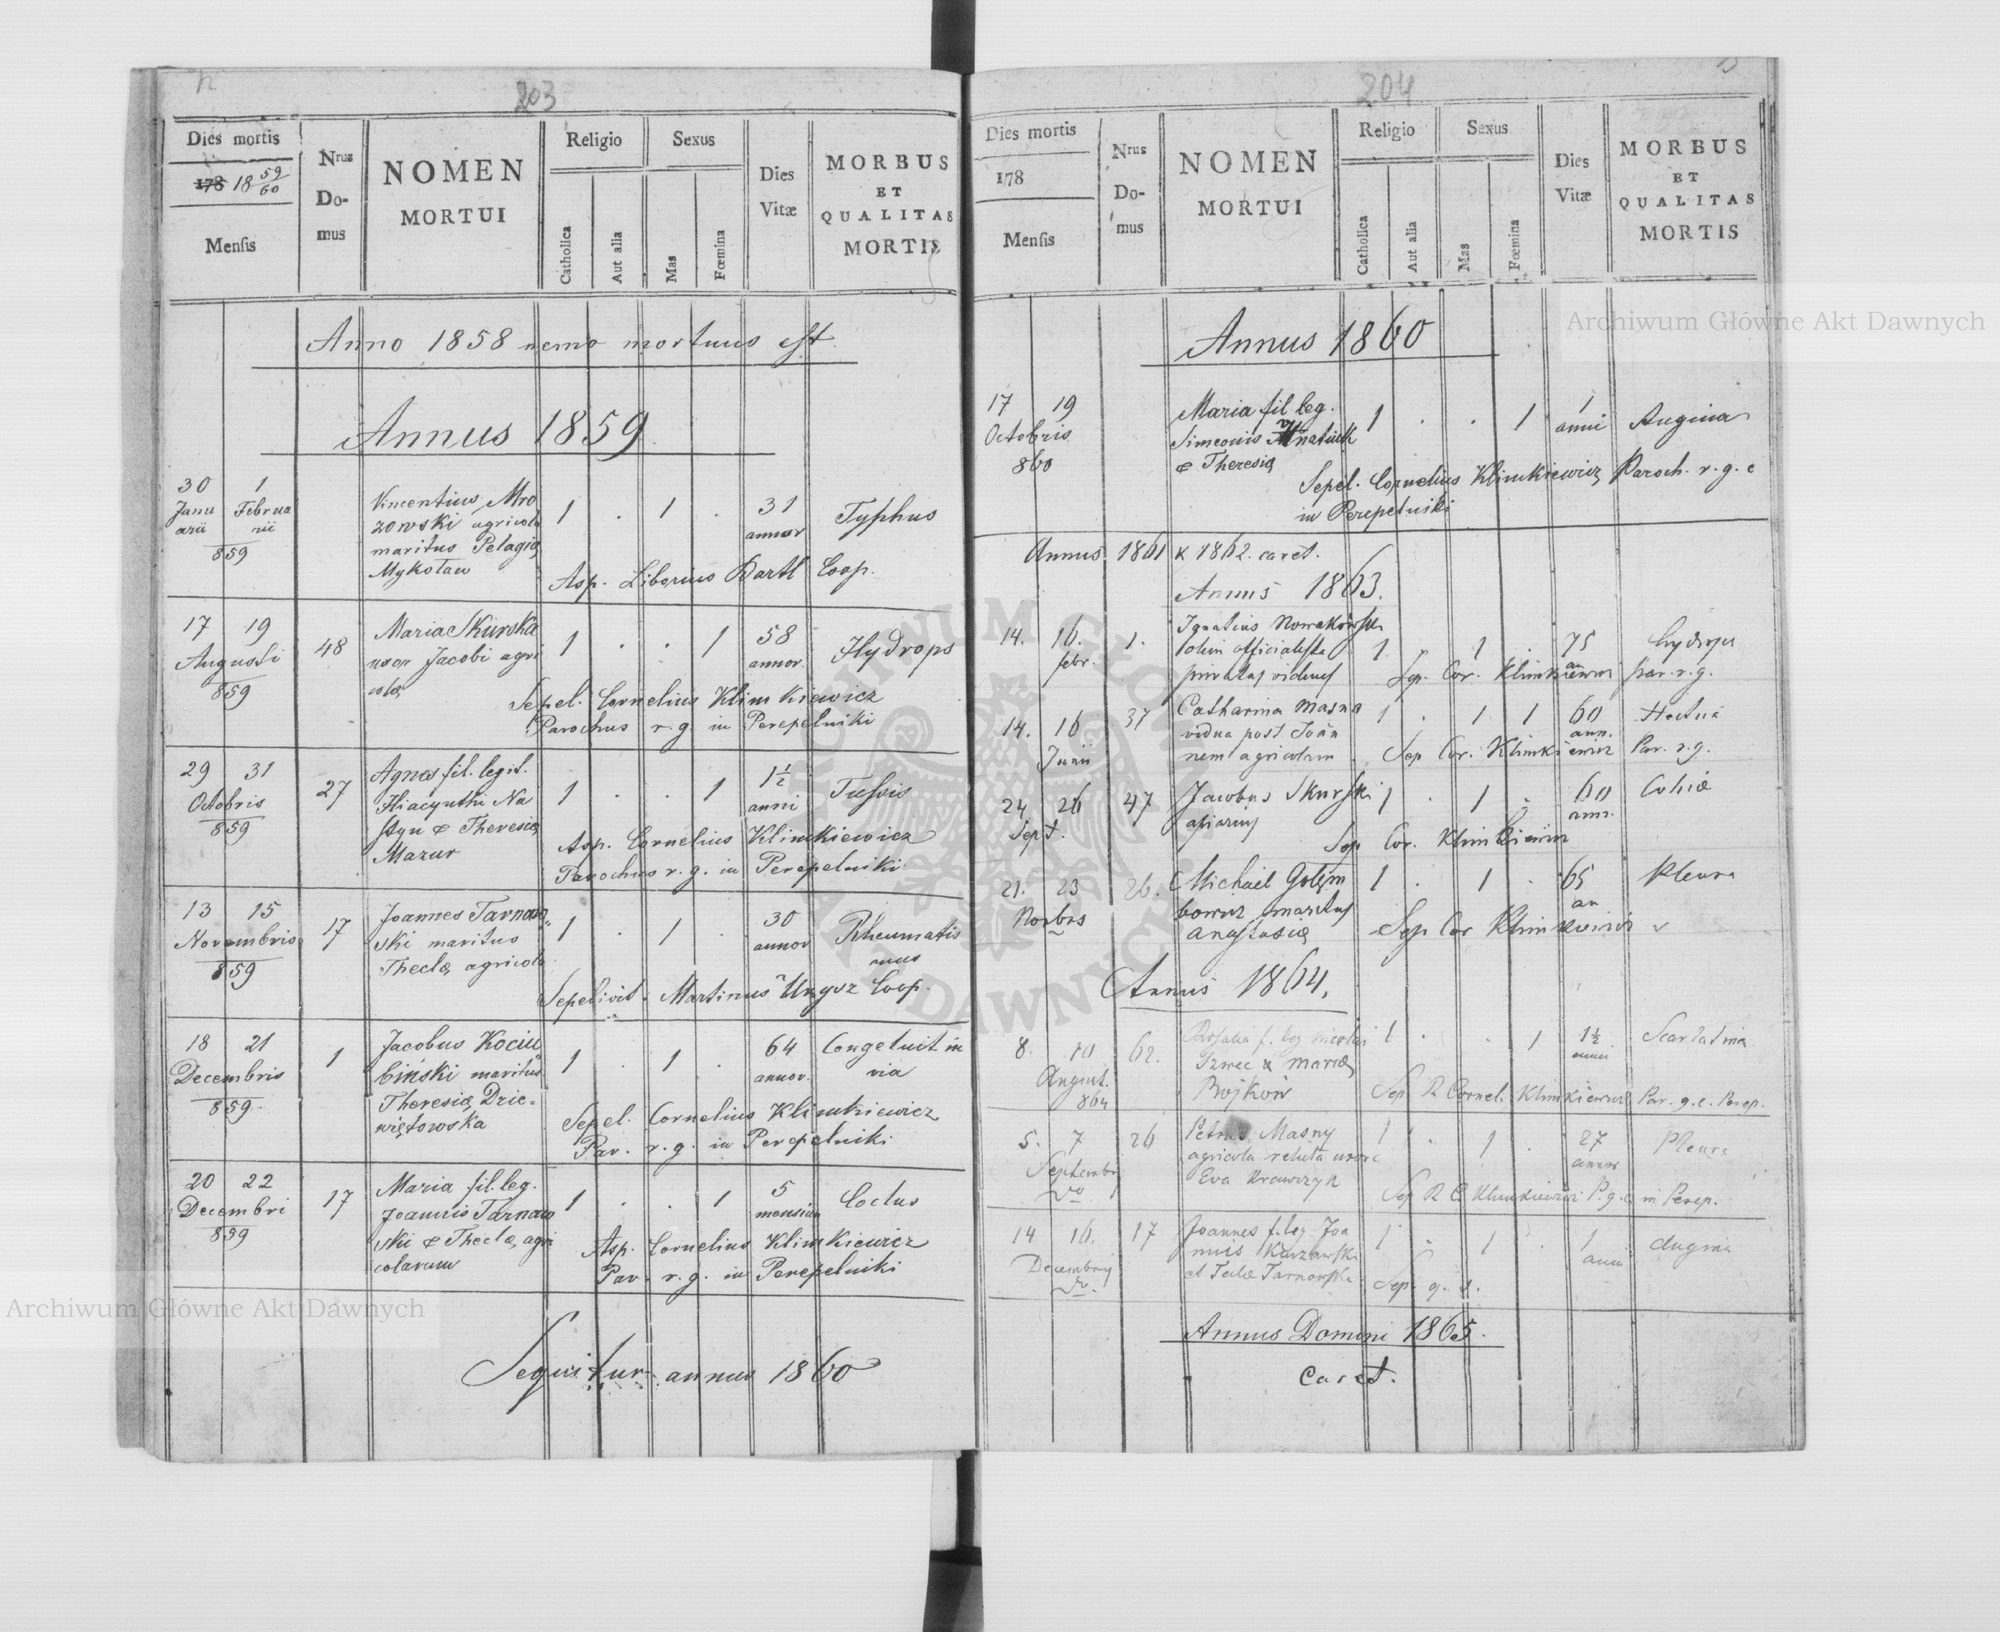 203
Dies mortis
178 18 59/60
Mensis
Nrus Do- mus
NOMEN
MORTUI
Religio
Catholica
Aut alia
Sexus
Mas
Fœmina
Dies
Vitæ
MORBUS
ET
QUALITAS
MORTIS
Anno 1858 nemo mortuus est.
Annus 1859
30 1
Janu Februa
arii rii
859
Vincentius Mro
zowski agricola
maritus Pelagiæ
Mykolaw
1 . 1 .
31
annor
Typhus
Asp. Liborius Bartl Coop.
17 19
Augusti
859
48
Maria Skurska
uxor Jacobi agri
colæ
1 . . 1
58
annor.
Hydrops
Sepel. Cornelius Klimkiewicz
Parochus r. g. in Perepelniki
29 31
Octobris
859
27
Agnes fil. legit.
Hiacynthi Na
styn & Theresiæ
Mazur
1 . . 1
1½
anni
Tussis
Asp. Cornelius Klimkiewicz
Parochus r. g. in Perepelniki
13 15
Novembris
859
17
Joannes Tarnaw
ski maritus
Theclæ agricola
1 . 1 .
30
annor
Rheumatis
mus
Sepelivit. Martinus Ungvz Coop.
18 21
Decembris
859.
1
Jacobus Kociu
biński maritus
Theresiæ Dzie-
więtowska
1 . 1 .
64
annor.
Congeluit in
via
Sepel. Cornelius Klimkiewicz
Par. r. g. in Perepelniki
20 22
Decembri
859
17
Maria fil. leg.
Joannis Tarnaw
ski & Theclæ agri
colarum
1 . . 1
5
mensium
Asp. Cornelius Klimkiewicz
Par. r. g. in Perepelniki
Sequitur annus 1860
204
Dies mortis
178
Mensis
Nrus Do- mus
NOMEN
MORTUI
Religio
Catholica
Aut alia
Sexus
Mas
Fœmina
Dies
Vitæ
MORBUS
ET
QUALITAS
MORTIS
Annus 1860
17 19
Octobris
860
Maria fil leg.
Simeonis
& Theresiæ
1 . . 1
1
anni
Angina
Sepel. Cornelius Klimkiewicz Paroch. r. g. c
in Perepelniki
Annus 1861 & 1862. caret.
Annus 1863.
14. 16.
febr.
1.
Ignatius Nowakowski
olim officialista
privatus viduus
1 . 1 .
75
an
Hydrops
Sep. Cor. Klimkiewicz par. r. g.
14. 16
Junii
37
Catharina Masna
vidua post Joan
nem agricolam
1 . 1 1
60
ann.
Sep Cor. Klimkiewicz Par. r. g.
24 26
Sept.
47
Jacobus Skurski
1 . 1 .
60
ann.
Sep Cor. Klimkiewicz
21. 23
Novbris
26.
Michael
maritus
Anastasiæ
1 . 1 .
65
an
Pleura
Sep Cor Klimkiewicz
Annus 1864.
8 10
August.
864
62.
Rosalia f. leg Nicolai
Szwec & Mariæ
Bojków
1 . . 1
1½
anni
Scarlatina
Sep R Cornel. Klimkiewicz Par. g. c. Perep.
5. 7
Septembr
do
26
Petrus Masny
agricola relicta uxore
Eva Krawczyk
1 . 1 .
27
annor
Pleura
Sep R C Klimkiewicz P. g. c. in Perep.
14 16.
Decembris
do.
17
Joannes f. leg Joa
nnis Kurzawski
et Teclæ Tarnowska
1 . 1 .
1
anni
Angina
Sep. q. s.
Annus Domini 1865.
Caret.
Archiwum Główne Akt Dawnych
Archiwum Główne Akt Dawnych
ARCHIWUM GŁÓWNE AKT DAWNYCH